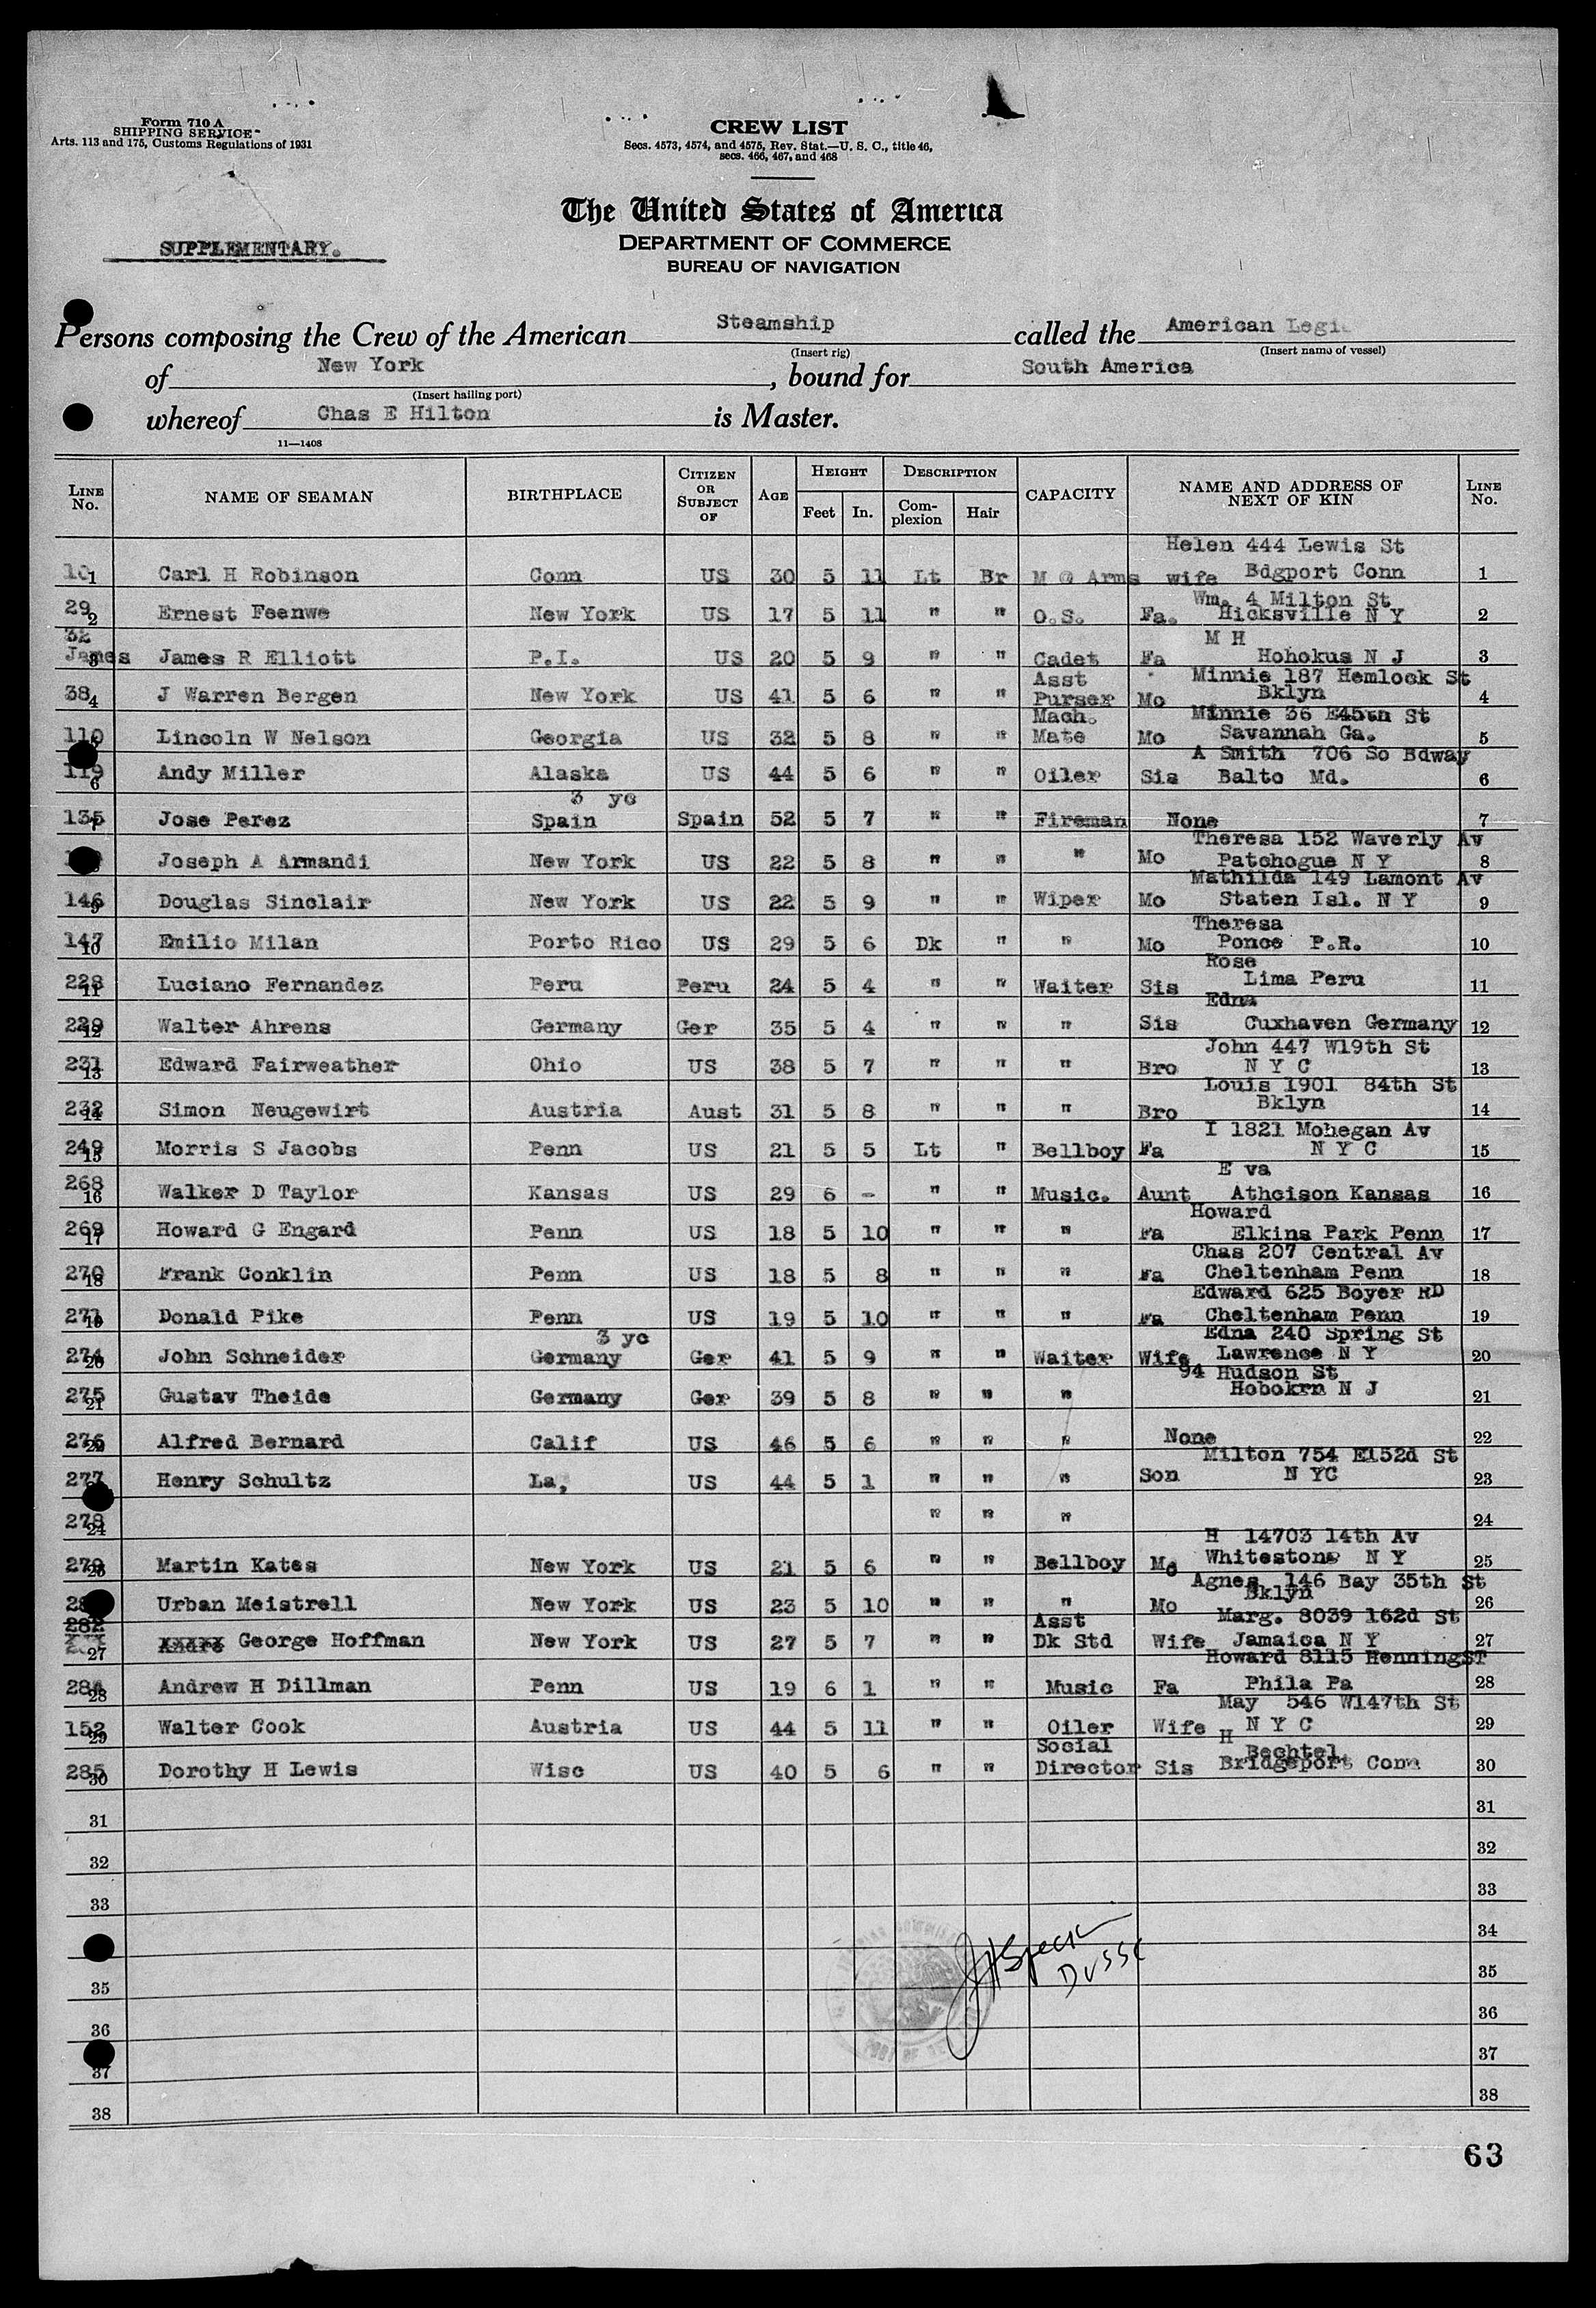 Form 710 A
SHIPPING SERVICE
Arts. 113 and 175, Customs Regulations of 1931
CREW LIST
Secs. 4573, 4574, and 4575, Rev. Stat.—U. S. C., title 46,
secs. 466, 467, and 468
The United States of America
DEPARTMENT OF COMMERCE
BUREAU OF NAVIGATION
SUPPLEMENTARY.
Persons composing the Crew of the American Steamship called the American Legi
(Insert rig) (Insert name of vessel)
of New York, bound for South America
(Insert hailing port)
whereof Chas E Hilton is Master.
11—1408
LINE No. NAME OF SEAMAN BIRTHPLACE CITIZEN OR SUBJECT OF AGE HEIGHT Feet In. DESCRIPTION Complexion Hair CAPACITY NAME AND ADDRESS OF NEXT OF KIN LINE No.
Helen 444 Lewis St
1 Carl H Robinson Conn US 30 5 11 Lt Br M @ Arms wife Bdgport Conn 1
Wm. 4 Milton St
29 2 Ernest Feenwe New York US 17 5 11 " " O.S. Fa. Hicksville N Y 2
32 M H
James 3 James R Elliott P.I. US 20 5 9 " " Cadet Fa Hohokus N J 3
Asst Minnie 187 Hemlock St
38 4 J Warren Bergen New York US 41 5 6 " " Purser Mo Bklyn 4
Mach. Minnie 36 E45th St
110 5 Lincoln W Nelson Georgia US 32 5 8 " " Mate Mo Savannah Ga. 5
A Smith 706 So Bdway
119 6 Andy Miller Alaska US 44 5 6 " " Oiler Sis Balto Md. 6
3 yc
135 7 Jose Perez Spain Spain 52 5 7 " " Fireman None 7
Theresa 152 Waverly Av
Joseph A Armandi New York US 22 5 8 " " " Mo Patchogue N Y 8
Mathilda 149 Lamont Av
146 9 Douglas Sinclair New York US 22 5 9 " " Wiper Mo Staten Isl. N Y 9
Theresa
147 10 Emilio Milan Porto Rico US 29 5 6 Dk " " Mo Ponce P.R. 10
Rose
228 11 Luciano Fernandez Peru Peru 24 5 4 " " Waiter Sis Lima Peru 11
Edna
229 12 Walter Ahrens Germany Ger 35 5 4 " " " Sis Cuxhaven Germany 12
John 447 W19th St
231 13 Edward Fairweather Ohio US 38 5 7 " " " Bro N Y C 13
Louis 1901 84th St
232 14 Simon Neugewirt Austria Aust 31 5 8 " " " Bro Bklyn 14
I 1821 Mohegan Av
249 15 Morris S Jacobs Penn US 21 5 5 Lt " Bellboy Fa N Y C 15
E va
268 16 Walker D Taylor Kansas US 29 6 - " " Music. Aunt Athcison Kansas 16
Howard
269 17 Howard G Engard Penn US 18 5 10 " " " Fa Elkins Park Penn 17
Chas 207 Central Av
270 18 Frank Conklin Penn US 18 5 8 " " " Fa Cheltenham Penn 18
Edward 625 Boyer RD
271 19 Donald Pike Penn US 19 5 10 " " " Fa Cheltenham Penn 19
3 yc Edna 240 Spring St
274 20 John Schneider Germany Ger 41 5 9 " " Waiter Wife Lawrence N Y 20
94 Hudson St
275 21 Gustav Theide Germany Ger 39 5 8 " " " Hobokrn N J 21
276 22 Alfred Bernard Calif US 46 5 6 " " " None 22
Milton 754 E152d St
277 Henry Schultz La, US 44 5 1 " " " Son N YC 23
278 24 " " " 24
H 14703 14th Av
279 25 Martin Kates New York US 21 5 6 " " Bellboy Mo Whitestone N Y 25
Agnes 146 Bay 35th St
Urban Meistrell New York US 23 5 10 " " " Mo Bklyn 26
282 Asst Marg. 8039 162d St
27 George Hoffman New York US 27 5 7 " " Dk Std Wife Jamaica N Y 27
Howard 8115 HenningST
284 28 Andrew H Dillman Penn US 19 6 1 " " Music Fa Phila Pa 28
May 546 W147th St
152 29 Walter Cook Austria US 44 5 11 " " Oiler Wife N Y C 29
Social H Bechtel
285 30 Dorothy H Lewis Wisc US 40 5 6 " " Director Sis Bridgeport Conn 30
31 31
32 32
33 33
34
35 35
36 36
37 37
38 38
63